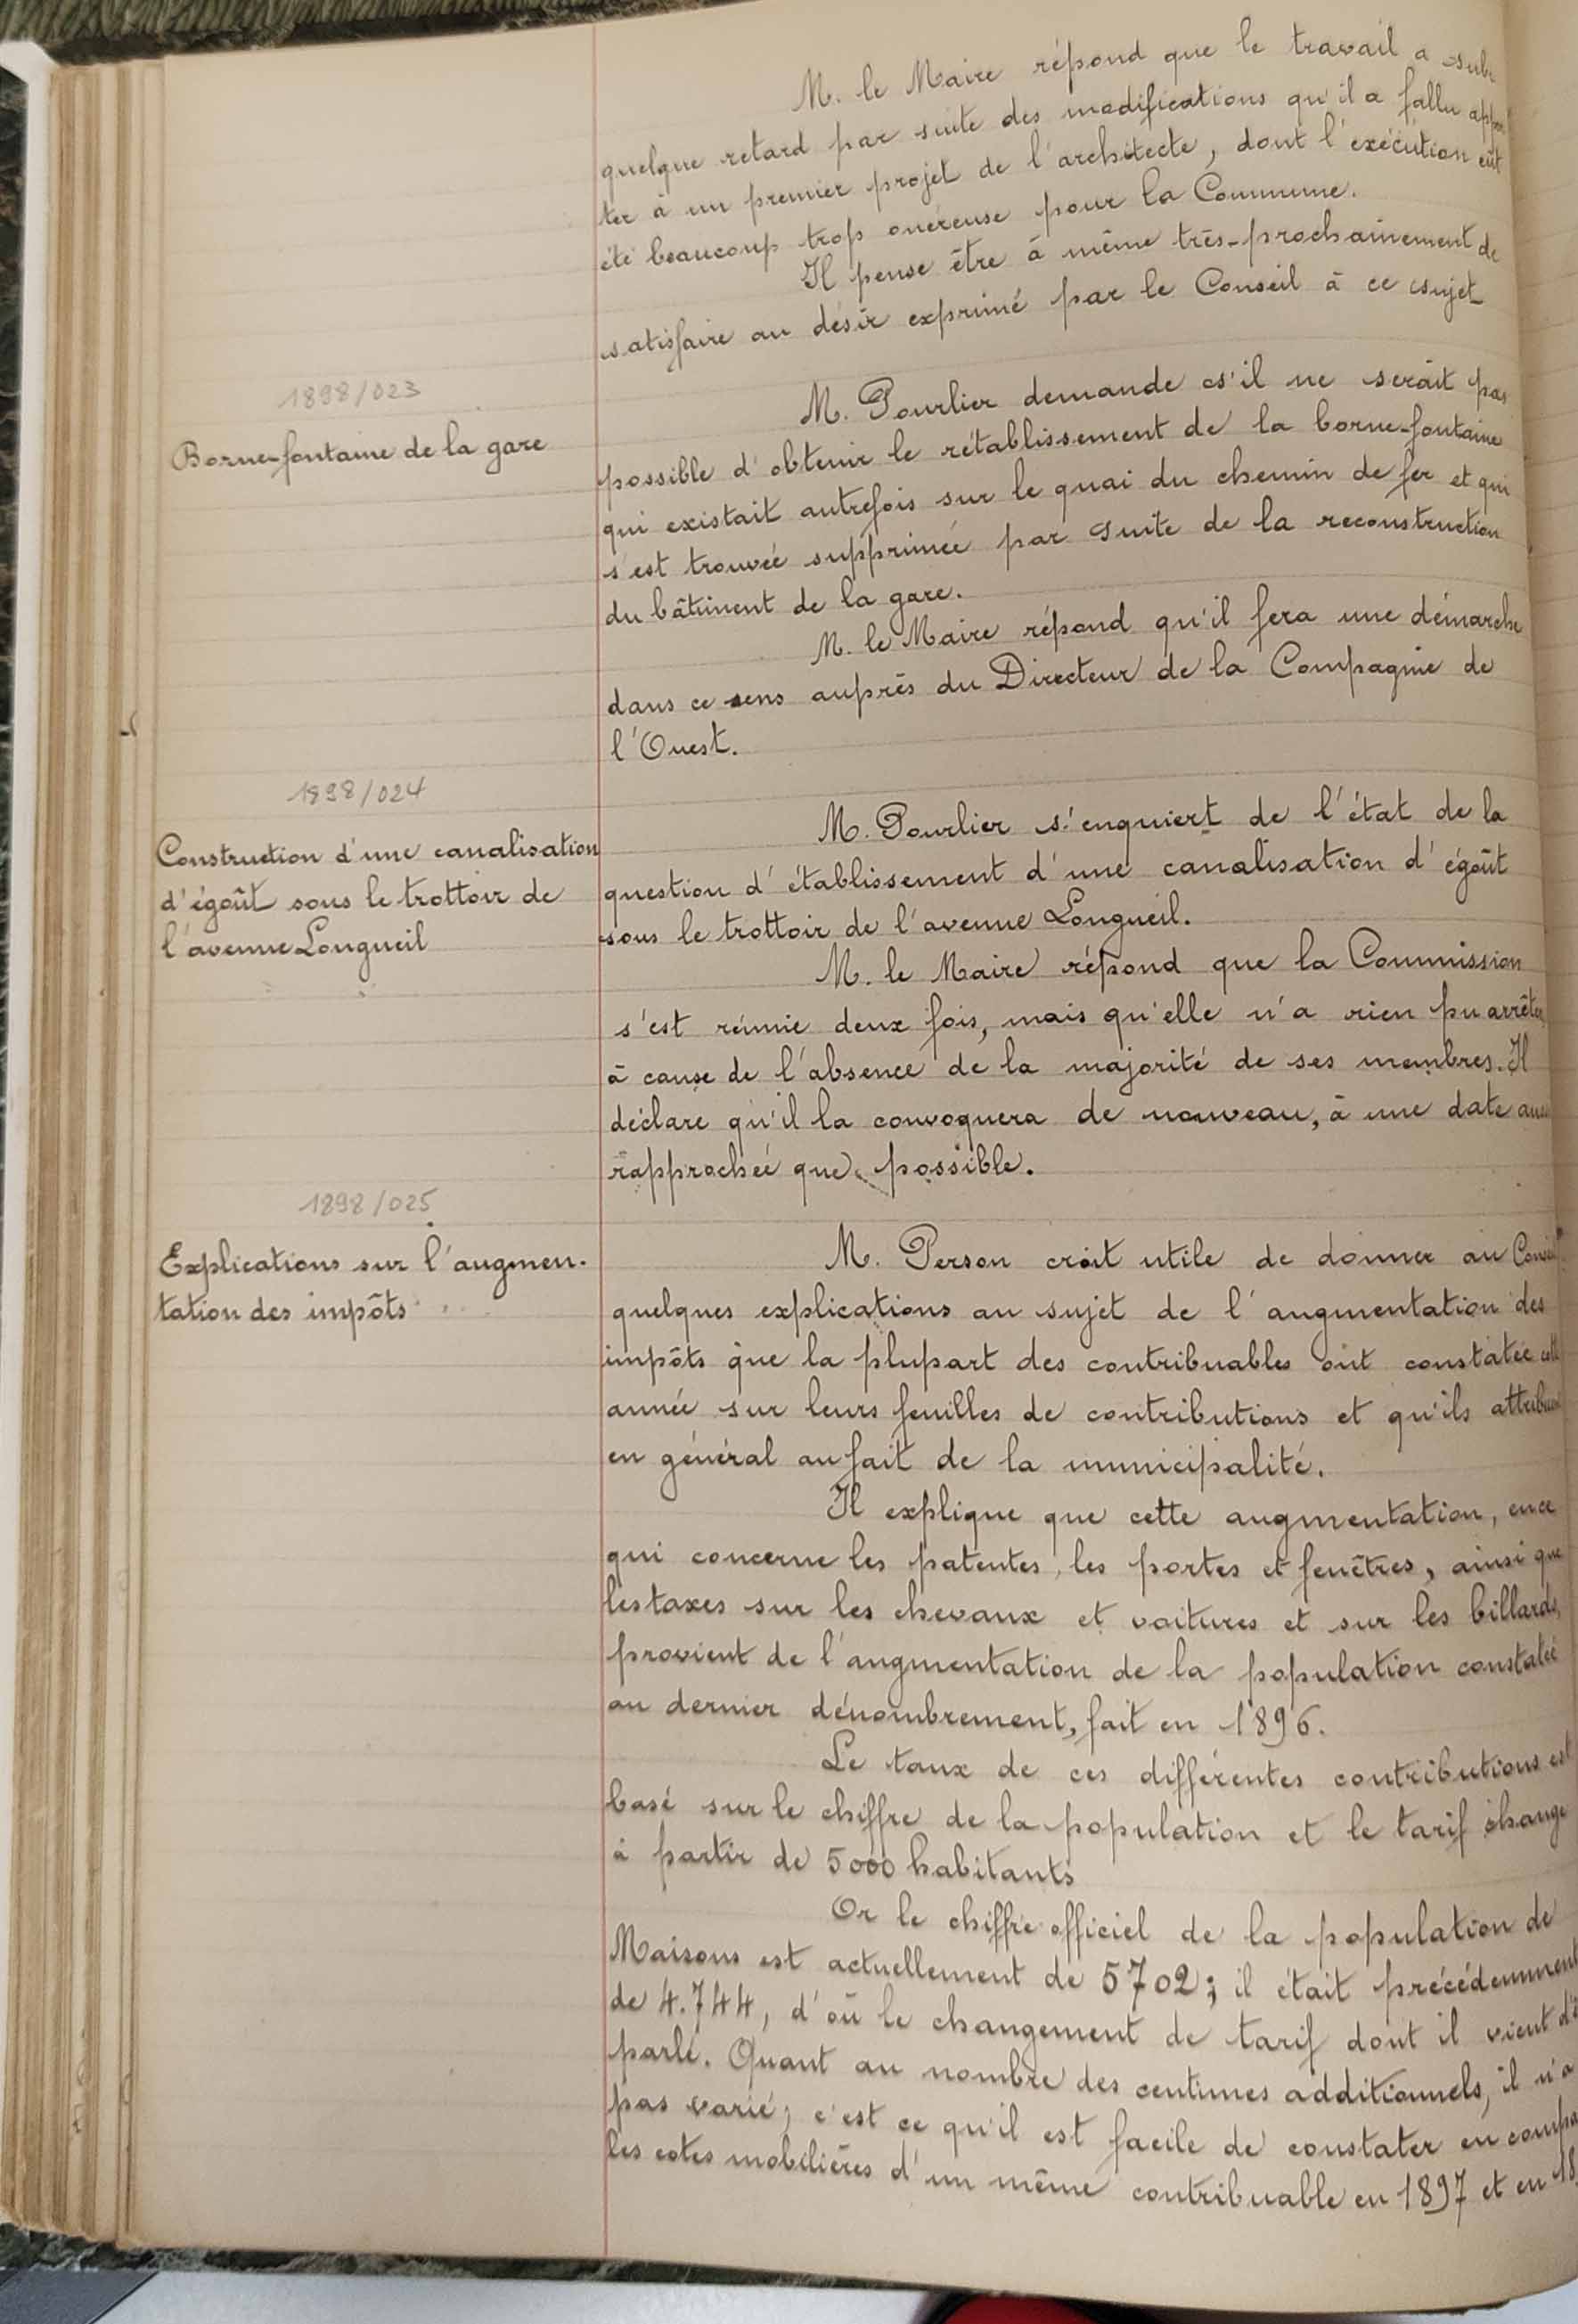 M. le Maire répond que le travail a subi
quelque retard par suite des modifications qu'il a fallu appor
ter à un premier projet de l'architecte, dont l'exécution eût
été beaucoup trop onéreuse pour la Commune.
Il pense être à même très-prochainement de
satisfaire au désir exprimé par le Conseil à ce sujet
1898/023
Borne-fontaine de la gare
M. Pourlier demande s'il ne serait pas
possible d'obtenir le rétablissement de la borne-fontaine
qui existait autrefois sur le quai du chemin de fer et qui
s'est trouvée supprimée par suite de la reconstruction
du bâtiment de la gare.
M. le Maire répond qu'il fera une démarche
dans ce sens auprès du Directeur de la Compagnie de
l'Ouest.
1898/024
Construction d'une canalisation
d'égoût sous le trottoir de
l'avenue Longueil
M. Pourlier s'enquiert de l'état de la
question d'établissement d'une canalisation d'égoût
sous le trottoir de l'avenue Longueil.
M. le Maire répond que la Commission
s'est réunie deux fois, mais qu'elle n'a rien pu arrêter
à cause de l'absence de la majorité de ses membres. Il
déclare qu'il la convoquera de nouveau, à une date
rapprochée que possible.
1898/025
Explications sur l'augmen-
tation des impôts
M. Person croit utile de donner au Conseil
quelques explications au sujet de l'augmentation des
impôts que la plupart des contribuables ont constatée
année sur leurs feuilles de contributions et qu'ils
en général au fait de la municipalité.
Il explique que cette augmentation, en ce
qui concerne les patentes, les portes et fenêtres, ainsi que
les taxes sur les chevaux et voitures et sur les billards,
provient de l'augmentation de la population constatée
au dernier dénombrement, fait en 1896.
Le taux de ces différentes contributions est
basé sur le chiffre de la population et le tarif change
à partir de 5000 habitants
Or le chiffre officiel de la population de
Maisons est actuellement de 5702; il était précédemment
de 4.744, d'où le changement de tarif dont il vient
parlé. Quant au nombre des centimes additionnels, il n'a
pas varié; c'est ce qu'il est facile de constater en
les cotes mobilières d'un même contribuable en 1897 et en